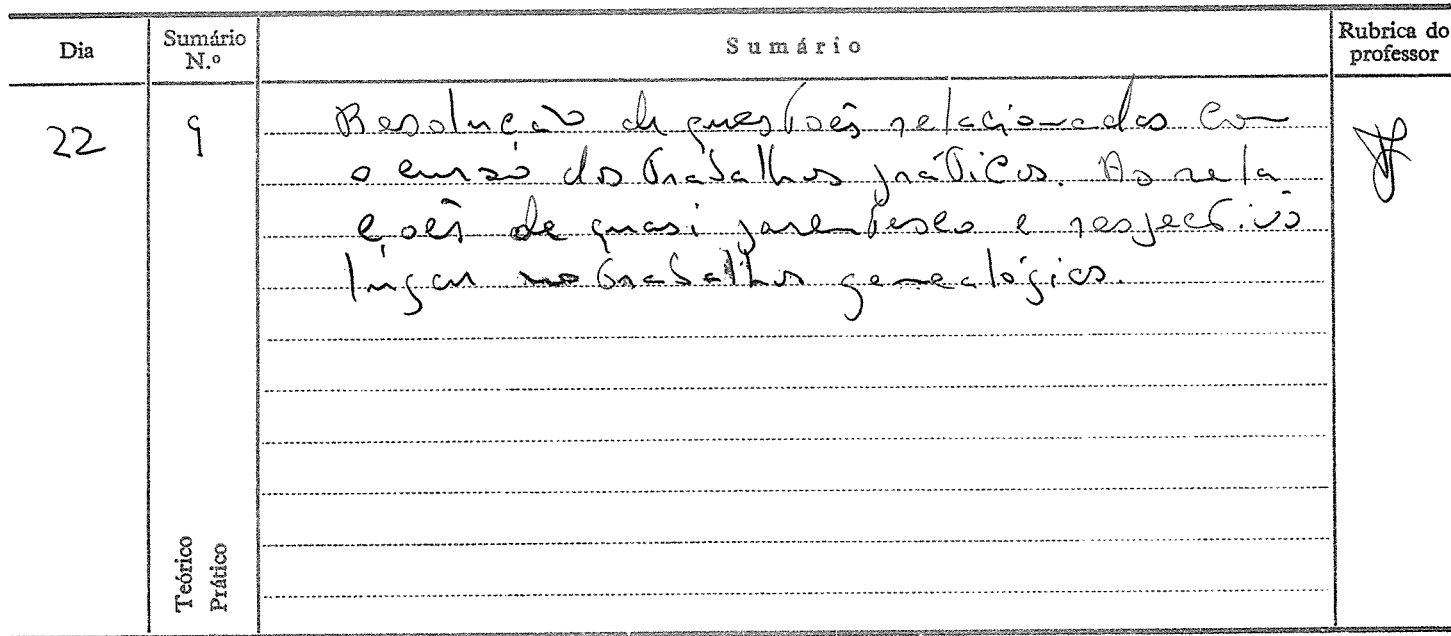 Dia
Sumário N.º
Sumário
Rubrica do professor
22
9
Resolução de questões relacionadas com
o curso dos trabalhos práticos. As rela
ções de quasi parentesco e respectivo
lugar nos trabalhos genealógicos.
Teórico
Prático